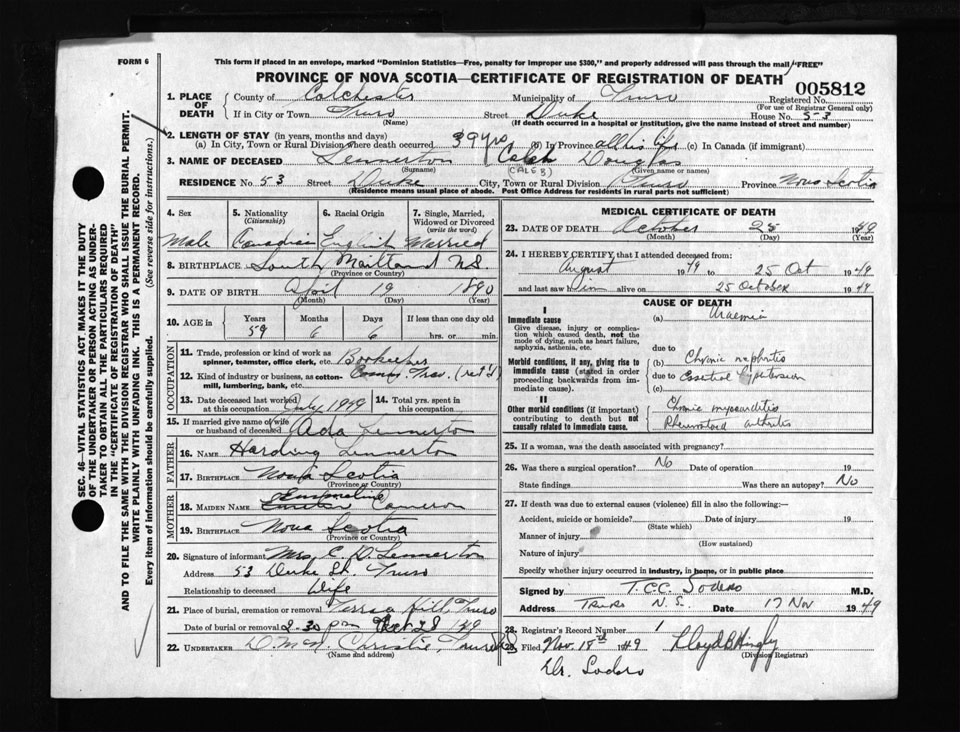 FORM 6
This form if placed in an envelope, marked "Dominion Statistics—Free, penalty for improper use $300," and properly addressed will pass through the mail "FREE"
PROVINCE OF NOVA SCOTIA—CERTIFICATE OF REGISTRATION OF DEATH
005812
Registered No.
(For use of Registrar General only)
1. PLACE OF DEATH { County of Colchester Municipality of Truro
If in City or Town Truro Street Duke House No. 53
(Name) (If death occurred in a hospital or institution, give the name instead of street and number)
2. LENGTH OF STAY (in years, months and days)
(a) In City, Town or Rural Division where death occurred 39 yrs (b) In Province all his life (c) In Canada (if immigrant)
3. NAME OF DECEASED Lennerton Caleb Douglas
(Surname) (CALEB) (Given name or names)
RESIDENCE No. 53 Street Duke City, Town or Rural Division Truro Province Nova Scotia
(Residence means usual place of abode. Post Office Address for residents in rural parts not sufficient)
4. Sex 5. Nationality (Citizenship) 6. Racial Origin 7. Single, Married, Widowed or Divorced (write the word)
Male Canadian English Married
8. BIRTHPLACE South Maitland N.S.
(Province or Country)
9. DATE OF BIRTH April 19 1890
(Month) (Day) (Year)
10. AGE in { Years Months Days If less than one day old
59 6 6 hrs. or min.
OCCUPATION
11. Trade, profession or kind of work as spinner, teamster, office clerk, etc. Bookeeper
12. Kind of industry or business, as cotton-mill, lumbering, bank, etc.
13. Date deceased last worked at this occupation July 1949 14. Total yrs. spent in this occupation
15. If married give name of wife or husband of deceased Ada Lennerton
FATHER
16. NAME Harding Lennerton
17. BIRTHPLACE Nova Scotia
(Province or Country)
MOTHER
18. MAIDEN NAME Cameron
19. BIRTHPLACE Nova Scotia
(Province or Country)
20. Signature of informant Mrs. C. D. Lennerton
Address 53 Duke St. Truro
Relationship to deceased Wife
21. Place of burial, cremation or removal Hill, Truro
Date of burial or removal 2-30 pm Oct 28 149
22. UNDERTAKER Christie, Truro
(Name and address)
MEDICAL CERTIFICATE OF DEATH
23. DATE OF DEATH October 25 1949
(Month) (Day) (Year)
24. I HEREBY CERTIFY that I attended deceased from:
August 1949 to 25 Oct 1949
and last saw him alive on 25 October 1949
CAUSE OF DEATH
I
Immediate cause (a) Uraemia
Give disease, injury or complication which caused death, not the mode of dying, such as heart failure, asphyxia, asthenia, etc.
due to
Morbid conditions, if any, giving rise to immediate cause (stated in order proceeding backwards from immediate cause).
(b) Chronic nephritis
due to Essential hypertension
(c)
II
Other morbid conditions (if important) contributing to death but not causally related to immediate cause.
Chronic myocarditis
Rheumatoid arthritis
25. If a woman, was the death associated with pregnancy?
26. Was there a surgical operation? No Date of operation 19
State findings Was there an autopsy? No
27. If death was due to external causes (violence) fill in also the following:—
Accident, suicide or homicide? Date of injury 19
(State which)
Manner of injury
(How sustained)
Nature of injury
Specify whether injury occurred in industry, in home, or in public place
Signed by T.C.C. Sodero M.D.
Address Truro N.S. Date 17 Nov 1949
28. Registrar's Record Number 1
29. Filed Nov. 18th 1949
(Division Registrar)
Dr. Sodero
SEC. 46—VITAL STATISTICS ACT MAKES IT THE DUTY
OF THE UNDERTAKER OR PERSON ACTING AS UNDER-
TAKER TO OBTAIN ALL THE PARTICULARS REQUIRED
IN THE "CERTIFICATE OF REGISTRATION OF DEATH"
AND TO FILE THE SAME WITH THE DIVISION REGISTRAR WHO SHALL ISSUE THE BURIAL PERMIT.
WRITE PLAINLY WITH UNFADING INK. THIS IS A PERMANENT RECORD.
Every item of information should be carefully supplied. (See reverse side for instructions.)